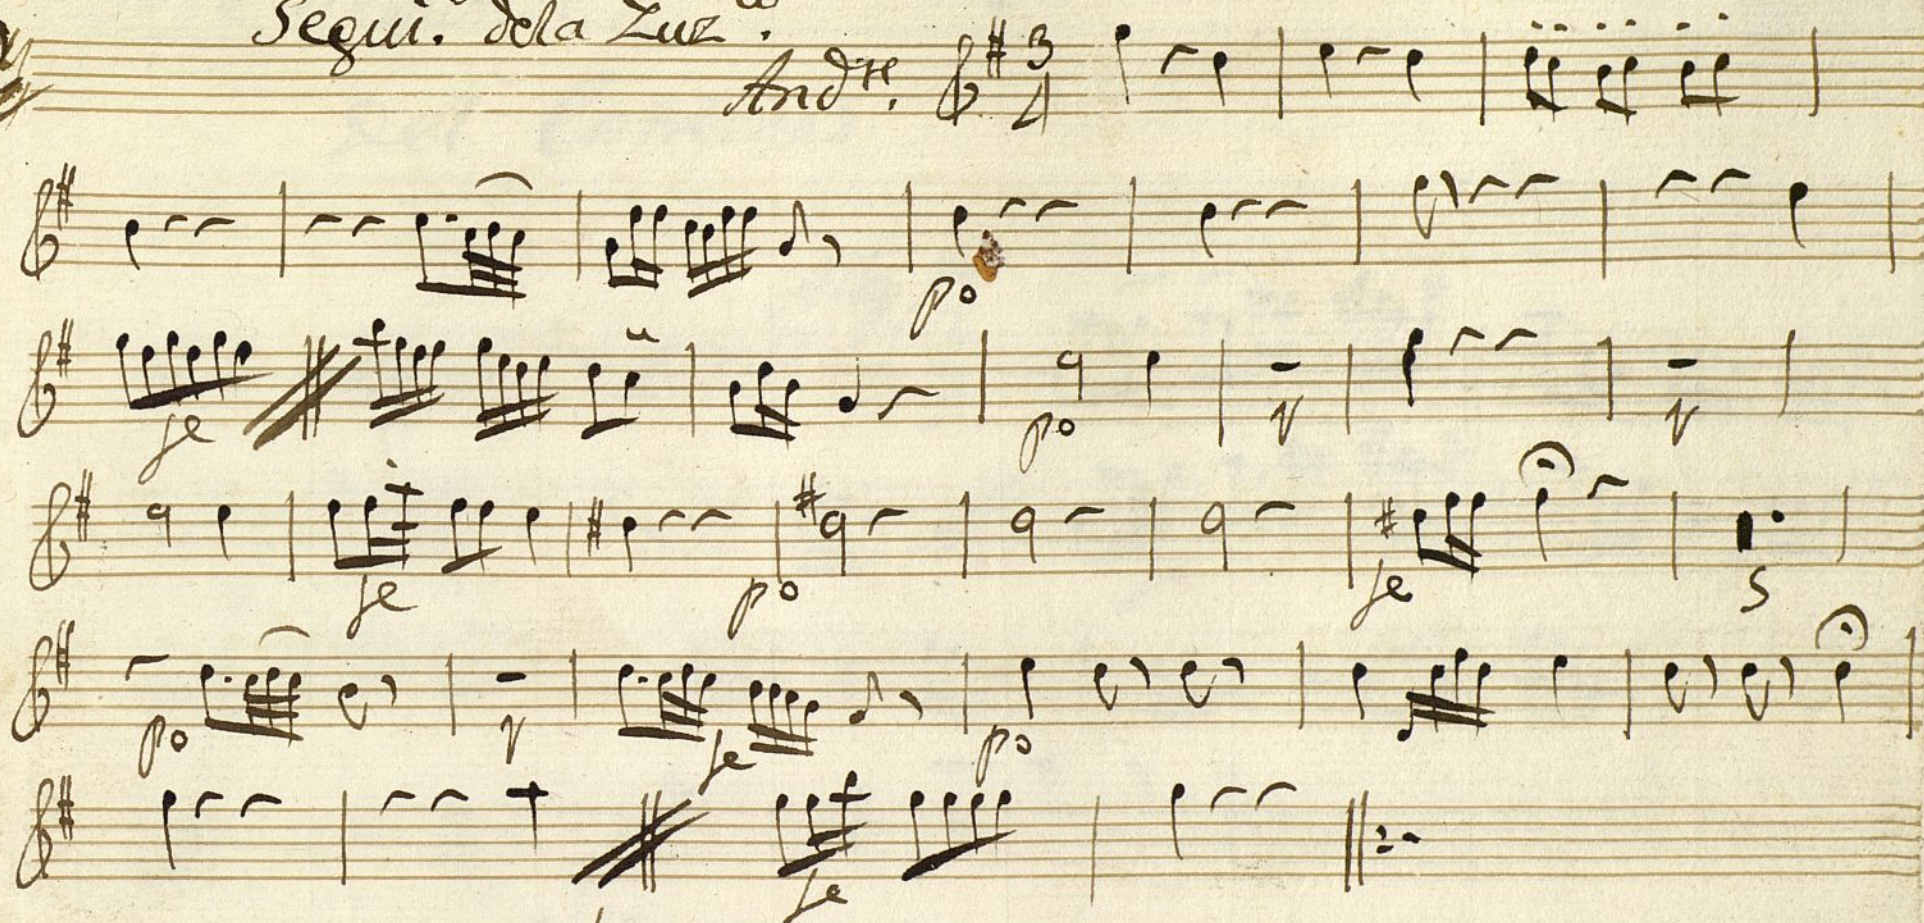 Segui.s dela Luz.
Andte. 3 4
po
fe po V V
fe po fe S
po V fe po
fe